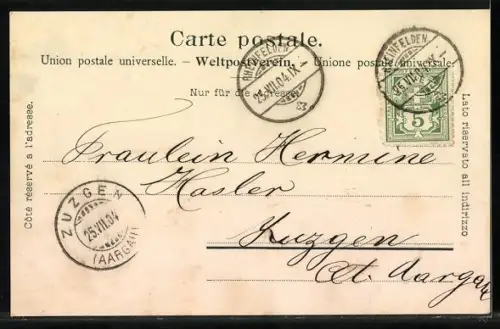 Carte postale.
Union postale universelle. – Weltpostverein. – Unione postale universale.
Nur für die Adresse.
Côté réservé à l'adresse.
Lato riservato all indirizzo
RHEINFELDEN
25.VII.04.IX
RHEINFELDEN
25.VII.04.IX
5
Fräulein Hermine
Hasler
Zuzgen
Ct. Aargau
ZUZGEN
25.VII.04
(AARGAU)